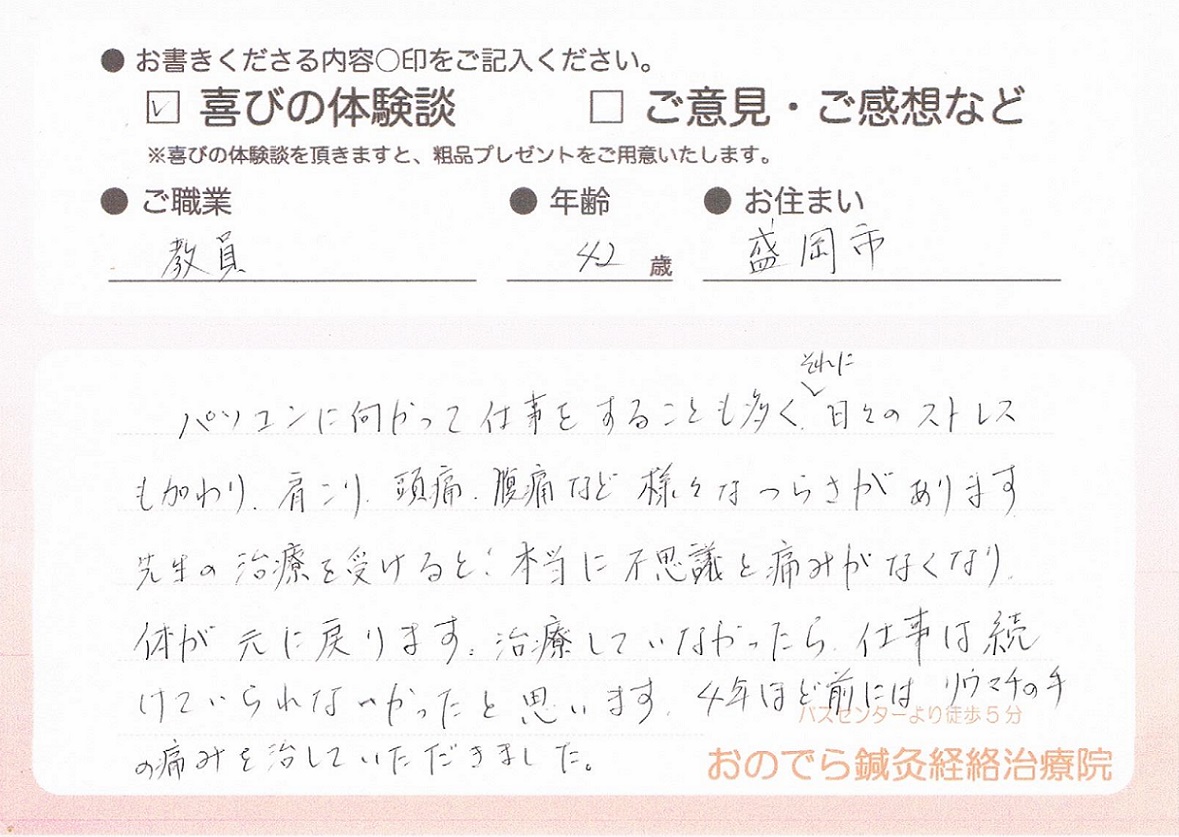 ● お書きくださる内容○印をご記入ください。
☑ 喜びの体験談 □ ご意見・ご感想など
※喜びの体験談を頂きますと、粗品プレゼントをご用意いたします。
● ご職業 ● 年齢 ● お住まい
教員 42 歳 盛岡市
それに
パソコンに向かって仕事をすることも多く、日々のストレス
も加わり、肩こり、頭痛、腹痛など様々なつらさがあります
先生の治療を受けると、本当に不思議と痛みがなくなり、
体が元に戻ります。治療していなかったら、仕事は続
けていられないかったと思います。4年ほど前には リウマチの手
の痛みを治していただきました。
バスセンターより徒歩5分
おのでら鍼灸経絡治療院